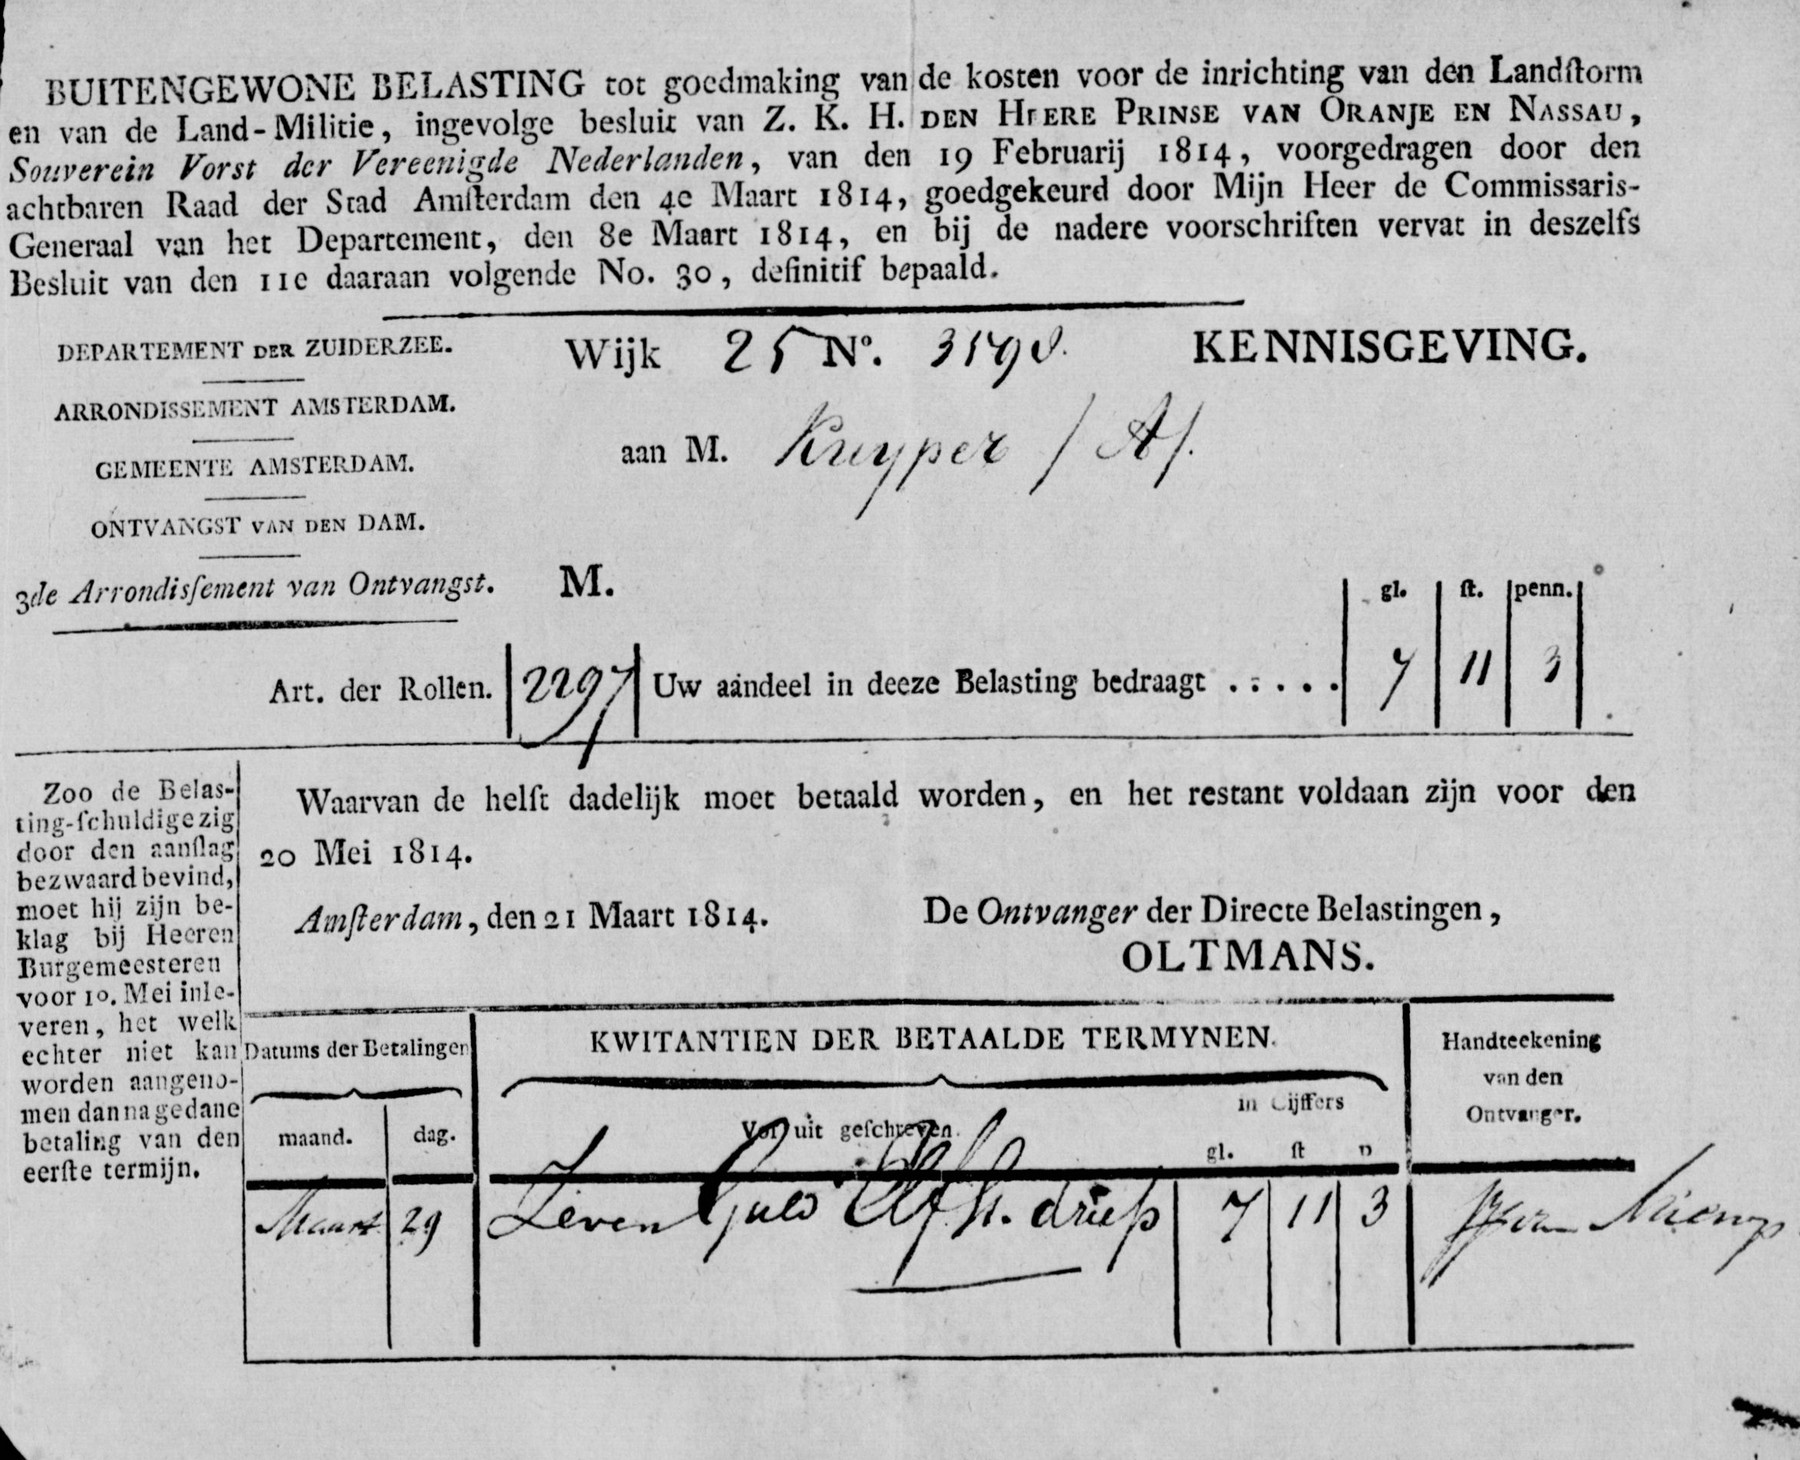 BUITENGEWONE BELASTING tot goedmaking van de kosten voor de inrichting van den Landſtorm
en van de Land-Militie, ingevolge besluit van Z. K. H. DEN HEERE PRINSE VAN ORANJE EN NASSAU,
Souverein Vorst der Vereenigde Nederlanden, van den 19 Februarij 1814, voorgedragen door den
achtbaren Raad der Stad Amſterdam den 4e Maart 1814, goedgekeurd door Mijn Heer de Commissaris-
Generaal van het Departement, den 8e Maart 1814, en bij de nadere voorschriften vervat in deszelfs
Besluit van den 11e daaraan volgende No. 30, definitif bepaald.
DEPARTEMENT DER ZUIDERZEE.
ARRONDISSEMENT AMSTERDAM.
GEMEENTE AMSTERDAM.
ONTVANGST VAN DEN DAM.
3de Arrondisſement van Ontvangst.
Wijk 25 No.
KENNISGEVING.
aan M. Kuyper / A/.
M.
gl. ſt. penn.
Art. der Rollen. 2297 Uw aandeel in deeze Belasting bedraagt ..... 7 11 3
Zoo de Belas-
ting-ſchuldige zig
door den aanſlag
bezwaard bevind,
moet hij zijn be-
klag bij Heeren
Burgemeesteren
voor 10. Mei inle-
veren, het welk
echter niet kan
worden aangeno-
men dan na gedane
betaling van den
eerſte termijn.
Waarvan de helft dadelijk moet betaald worden, en het restant voldaan zijn voor den
20 Mei 1814.
Amſterdam, den 21 Maart 1814.
De Ontvanger der Directe Belastingen,
OLTMANS.
Datums der Betalingen
maand. dag.
KWITANTIEN DER BETAALDE TERMYNEN.
Vol uit geſchreven.
in Cijffers
gl. ſt p
Handteekening
van den
Ontvanger.
Maart 29 Zeven Guld Elf St. drie p 7 11 3